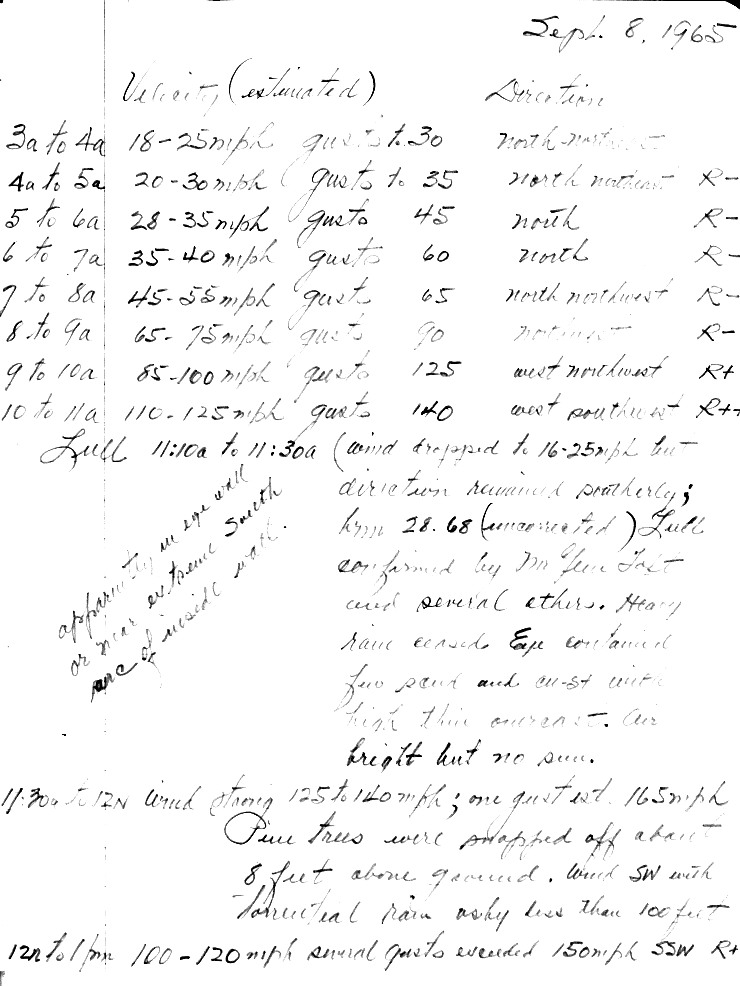 Sept. 8, 1965
Velocity (estimated) Direction
3a to 4a 18-25mph gusts to 30 north-northeast
4a to 5a 20-30mph gusts to 35 north northeast R-
5 to 6a 28-35mph gusts 45 north R-
6 to 7a 35-40mph gusts 60 north R-
7 to 8a 45-55mph gust 65 north northwest R-
8 to 9a 65-75mph gusts 90 northwest R-
9 to 10a 85-100mph gusts 125 west northwest R+
10 to 11a 110-125mph gusts 140 west southwest R++
Lull 11:10a to 11:30a (wind dropped to 16-25mph but
direction remained southerly;
brm 28.68 (uncorrected) Lull
confirmed by Mr
and several others. Heavy
rain ceased. Eye contained
few scud and cu-st with
high thin overcast. Air
bright but no sun.
apparently in eye wall
or near extreme south
arc of inside wall.
11:30a to 12N Wind strong 125 to 140mph; one gust est. 165mph
Pine trees were snapped off about
8 feet above ground. Wind SW with
torrential rain vsby less than 100 feet
12n to 1pm 100-120mph several gusts exceeded 150mph SSW R+